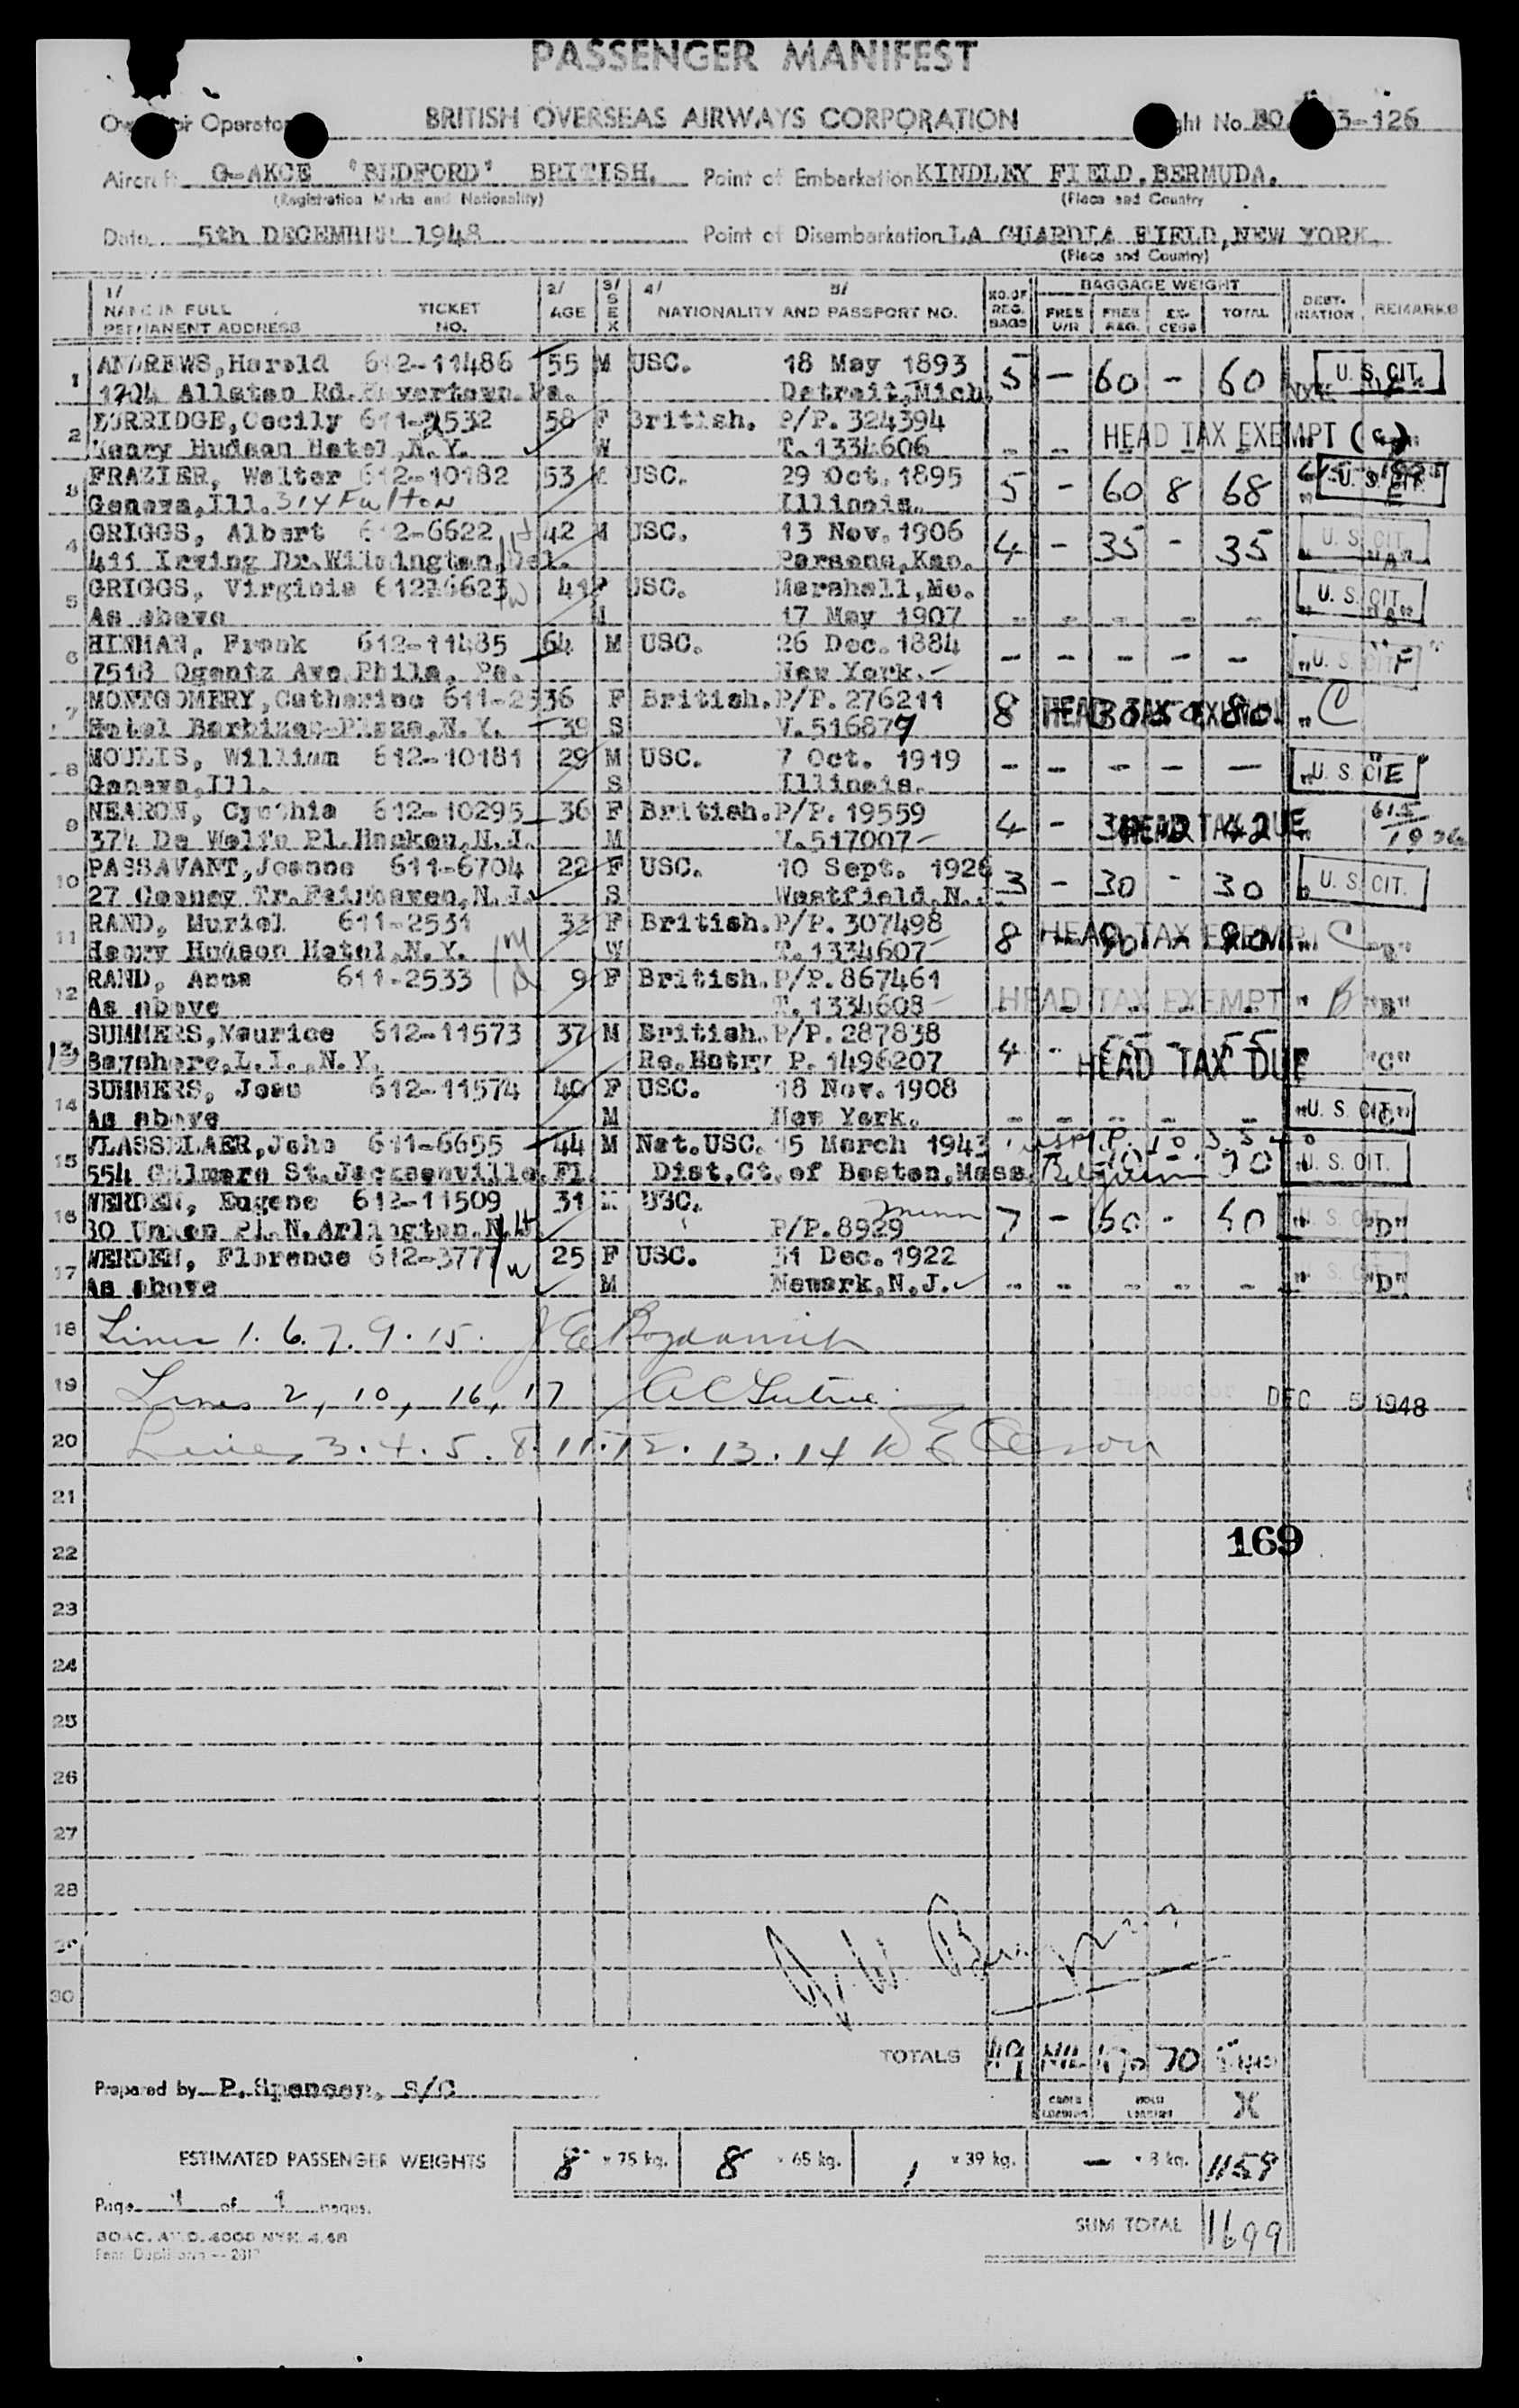 PASSENGER MANIFEST
Operator BRITISH OVERSEAS AIRWAYS CORPORATION No. 3-126
Aircraft G-AKCE "BEDFORD" BRITISH. Point of Embarkation KINDLEY FIELD, BERMUDA.
(Registration Marks and Nationality) (Place and Country
Date 5th DECEMBER 1948 Point of Disembarkation LA GUARDIA FIELD, NEW YORK.
(Place and Country)
1/ 2/ 3/ 4/ 5/ NO. OF BAGGAGE WEIGHT
NAME IN FULL TICKET AGE SEX NATIONALITY AND PASSPORT NO. REG. FREE FREE EX- TOTAL DEST- REMARKS
PERMANENT ADDRESS NO. BAGS U/R REG. CESS INATION
1 ANDREWS, Harold 612-11486 55 M USC. 18 May 1893 5 - 60 - 60 U. S. CIT.
1204 Allston Rd. Pa. Detroit, Mich. NYK
2 Cecily 611-2532 58 F British. P/P. 324394 HEAD TAX EXEMPT (C)
Henry Hudson Hotel, N.Y. W T.1334606 - -
3 FRAZIER, Walter 612-10182 53 M USC. 29 Oct. 1895 5 - 60 8 68 U. S. CIT. E
Geneva, Ill. 314 Fulton Illinois.
4 GRIGGS, Albert 612-6622 42 M USC. 13 Nov. 1906 4 - 35 - 35 U. S. CIT.
411 Irving Dr. Wilmington, Del. Parsons, Kan. "A"
5 GRIGGS, Virginia 612-6623 41 F USC. Marshall, Mo. U. S. CIT.
As above M 17 May 1907 - - - - - "A"
6 HINMAN, Frank 612-11485 64 M USC. 26 Dec. 1884 - - - - - U. S. CIT. "F"
7518 Ogontz Ave. Phila. Pa. New York.
7 MONTGOMERY, Catherine 611-2536 F British. P/P. 276211 8 HEAD TAX EXEMPT 80 C
Hotel Barbizon-Plaza, N.Y. 39 S V.516877
8 William 612-10181 29 M USC. 7 Oct. 1919 - - - - - U. S. CIT. "E"
Geneva, Ill. S Illinois.
9 NEARON, Cynthia 612-10295 36 F British. P/P. 19559 4 - HEAD TAX DUE 42
374 De Wolfe Pl. Hacken, N.J. M V.517007
10 PASSAVANT, Joanne 611-6704 22 F USC. 10 Sept. 1926 3 - 30 - 30 U. S. CIT.
27 Tr. Fairhaven, N.J. S Westfield, N.J.
11 RAND, Muriel 611-2531 33 F British. P/P. 307498 8 HEAD TAX EXEMPT C
Henry Hudson Hotel, N.Y. W T.1334607 "B"
12 RAND, Anna 611-2533 9 F British. P/P. 867461 HEAD TAX EXEMPT B "B"
As above T.1334608
13 SUMMERS, Maurice 612-11573 37 M British. P/P. 287838 4 - 55 - 55
Bayshore, L.I., N.Y. Re.Entry P. 1496207 HEAD TAX DUE "C"
14 SUMMERS, Joan 612-11574 40 F USC. 18 Nov. 1908 U. S. CIT. "C"
As above M New York. - - - - -
15 VLASSELAER, John 611-6655 44 M Nat. USC. 15 March 1943
554 St. Jacksonville, Fl. Dist. Ct. of Boston, Mass. Belgium 70 U. S. CIT.
16 WERDEN, Eugene 612-11509 31 M USC. 7 - 50 - 50 U. S. CIT. "D"
30 Union Pl. N. Arlington, N.J. P/P. 8929
17 WERDEN, Florence 612-3777 25 F USC. 31 Dec. 1922 U. S. CIT. "D"
As above M Newark, N.J. - - - - -
18 Lines 1. 6. 7. 9. 15.
19 Lines 2, 10, 16, 17 Inspector DEC 5 1948
20 Lines 3. 4. 5. 8. 11. 12. 13. 14
21
22 169
23
24
25
26
27
28
29
30
TOTALS 49 NIL 470 70 540
Prepared by P. Spencer, S/C
CABIN LOADING HOLD LOADING X
ESTIMATED PASSENGER WEIGHTS 8 x 75 kg. 8 x 65 kg. 1 x 39 kg. - x 8 kg. 1159
Page 1 of 1 pages.
SUM TOTAL 1699